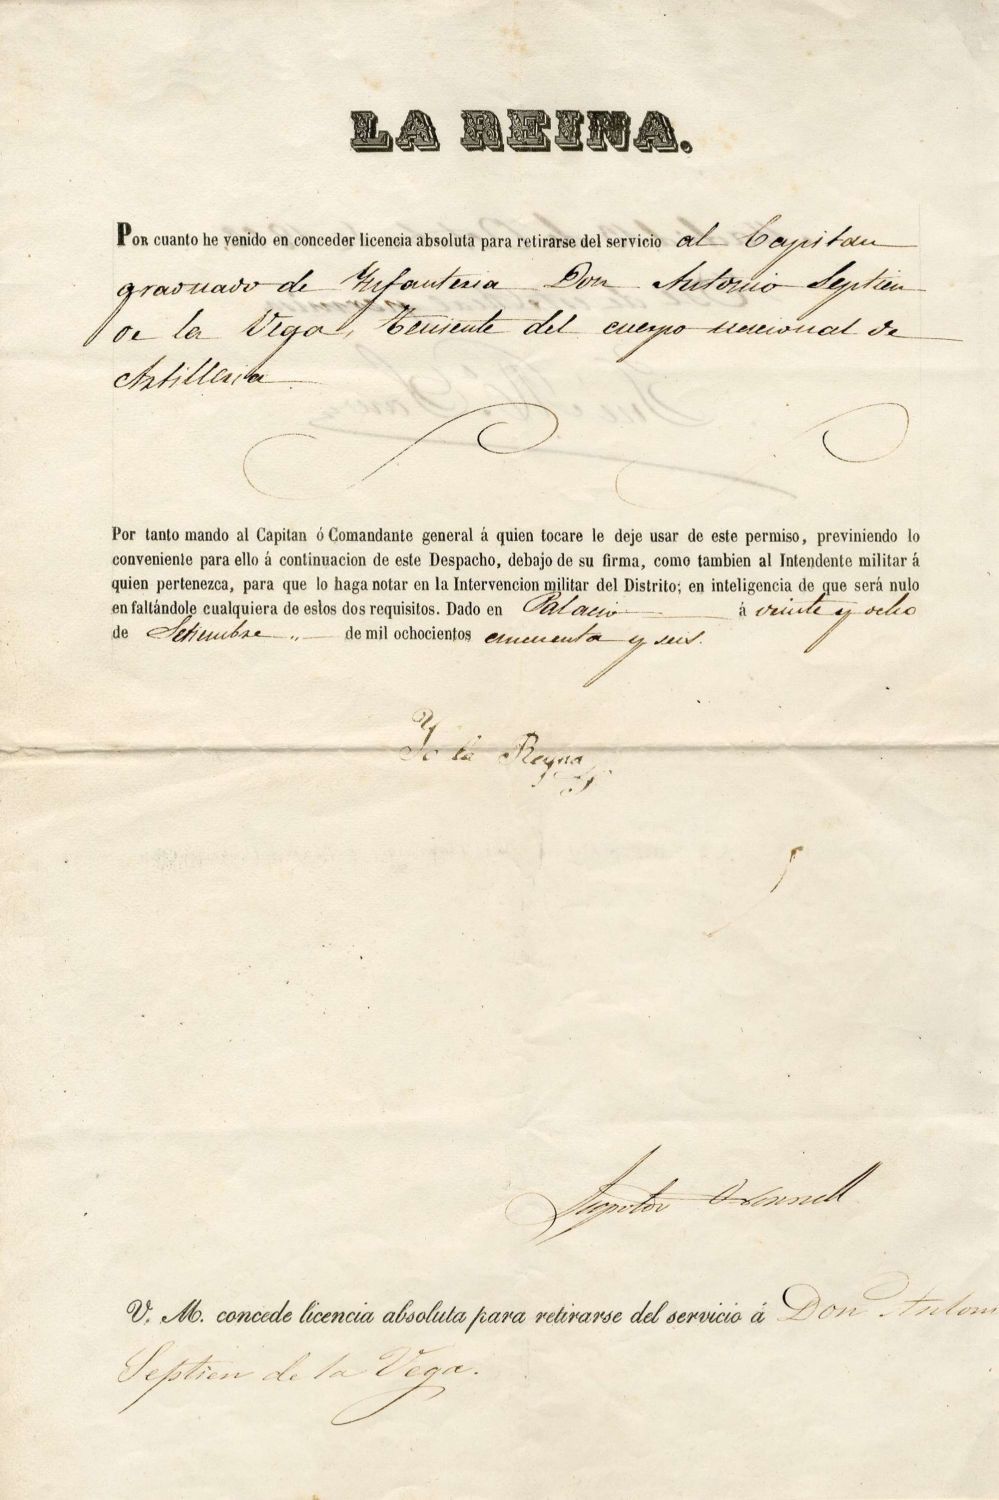 LA REINA.
Por cuanto he venido en conceder licencia absoluta para retirarse del servicio al Capitan
graduado de Infanteria Don Antonio Septien
de la Vega, Teniente del cuerpo nacional de
Artilleria
Por tanto mando al Capitan ó Comandante general á quien tocare le deje usar de este permiso, previniendo lo
conveniente para ello á continuacion de este Despacho, debajo de su firma, como tambien al Intendente militar á
quien pertenezca, para que lo haga notar en la Intervencion militar del Distrito; en inteligencia de que será nulo
en faltándole cualquiera de estos dos requisitos. Dado en Palacio á veinte y ocho
de Setiembre de mil ochocientos cincuenta y seis.
Yo la Reyna
Leopoldo O'Donnell
V. M. concede licencia absoluta para retirarse del servicio á Don Antoni
Septien de la Vega.